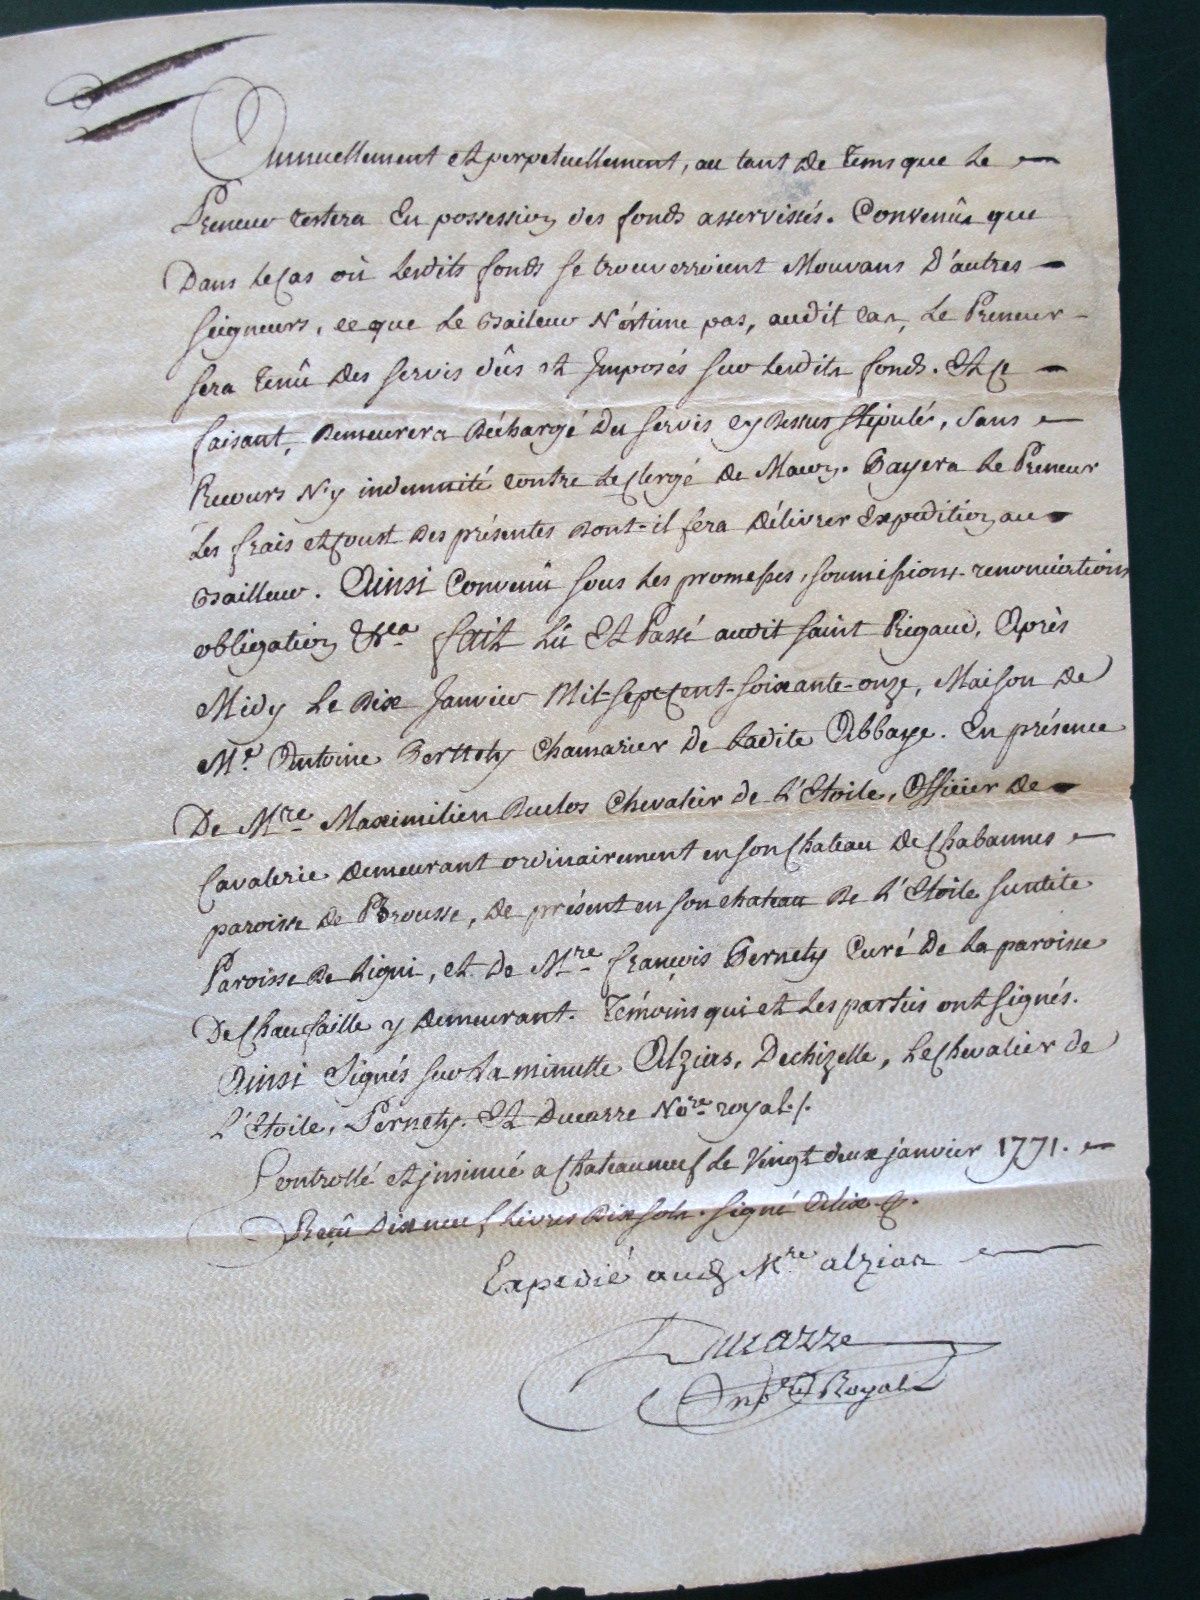 Annuellement et perpetuellement, au tant de tems que le
Preneur restera En possession des fonds asservissés. Convenûs que
Dans le Cas où lesdits fonds se trouverroient Mouvans D'autres
seigneurs, ce que le Bailleur N'éstime pas, audit Cas, le Preneur
sera tenû des servis dûs et Jmposés sur lesdits fonds. Et ce
faisant, demeurera déchargé du servis cy dessus stipulé, sans
Recours N'y indemnité contre le Clergé de Macon. Payera le Preneur
Les frais et Coust des présentes dont-il fera Délivrer Expedition au
Bailleur. Ainsi Convenû sous les promesses, soumissions renonciations
obligation &ca fait Lû Et Passé audit saint Rigaud, Après
Midy le dix Janvier Mil-sept-Cent-soixante-onze, Maison de
Me. Antoine Pernety Chamarier de ladite Abbaye. En présence
De Mre Maximilien Duclos Chevalier de L'Etoile, Officier de
Cavalerie demeurant ordinairement en son Chateau de Chabannes
paroisse de Brousse, de présent en son chateau de L'Etoile susdite
Paroisse de Ligni, et de Mre françois Pernety Curé de la paroisse
de Chaufaille y demeurant. Témoins qui et les parties ont signés.
Ainsi Signés sur la minutte Alzias, Dechizelle, le Chevalier de
L'Etoile, Pernety. Et Ducarre Nore royal./.
Controllé et jnsinué a Chateauneuf le Vingt deux janvier 1771.
Reçû dixneuf livres dix sols. signé Alix
Expedié aud Mre alzias
Ducarre
nore Royal